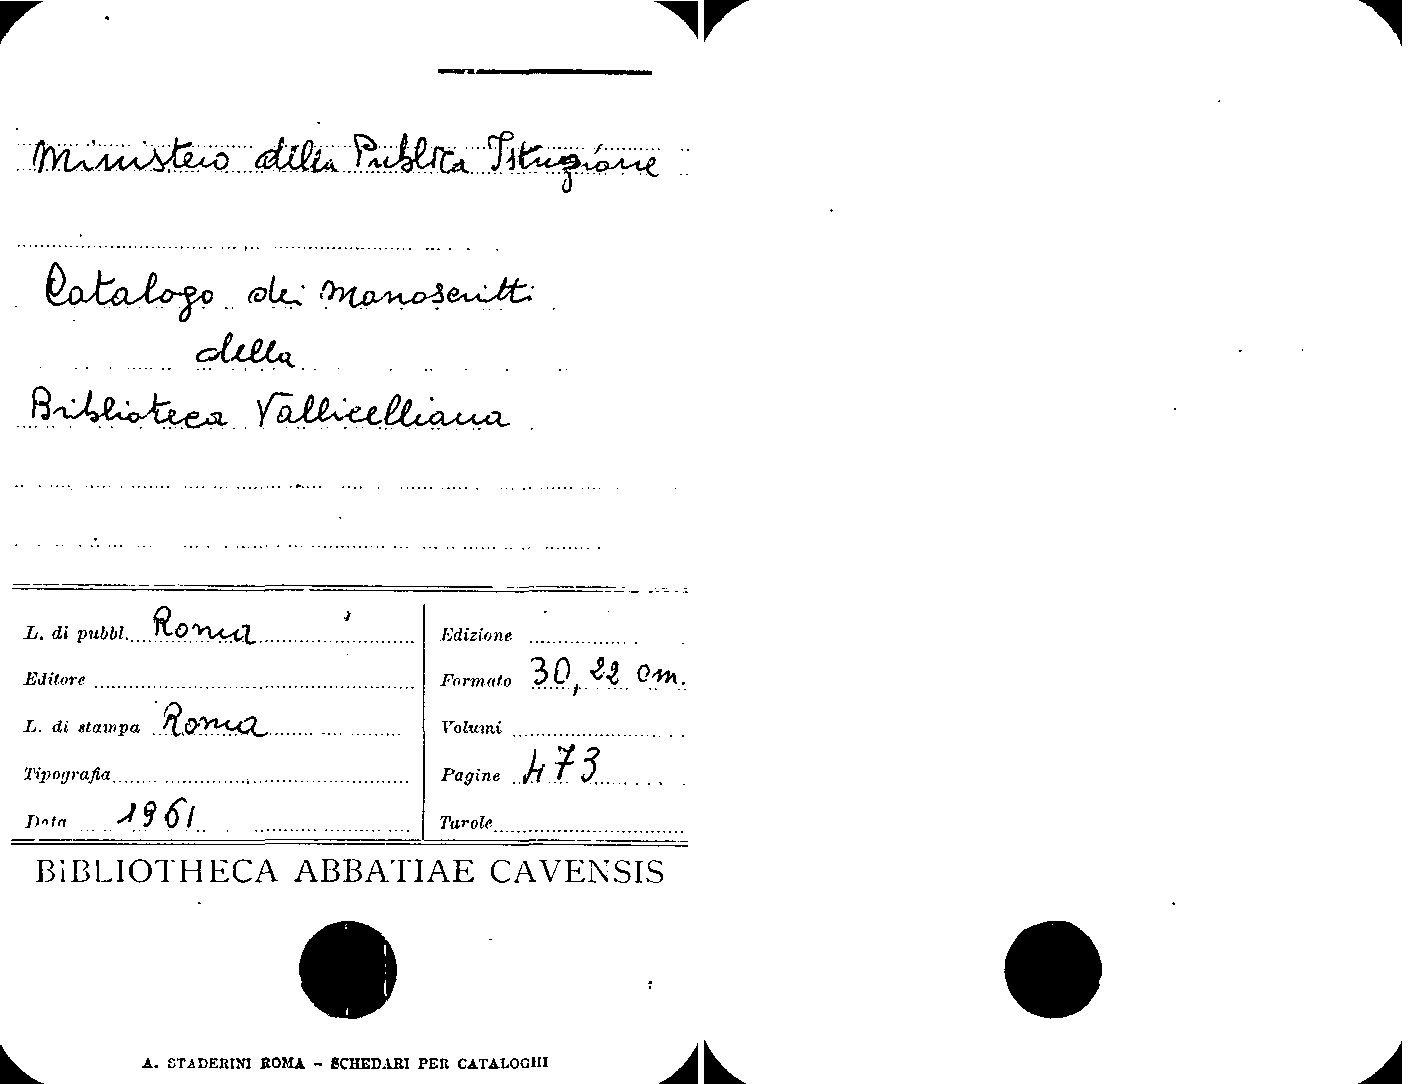 Ministero della Pubblica Istruzione
Catalogo dei Manoscritti
della
Biblioteca Vallicelliana
L. di pubbl. Roma
Editore
L. di stampa Roma
Tipografia
Data 1961
Edizione
Formato 30,22 cm.
Volumi
Pagine 473
Tavole
BIBLIOTHECA ABBATIAE CAVENSIS
A. STADERINI ROMA - SCHEDARI PER CATALOGHI